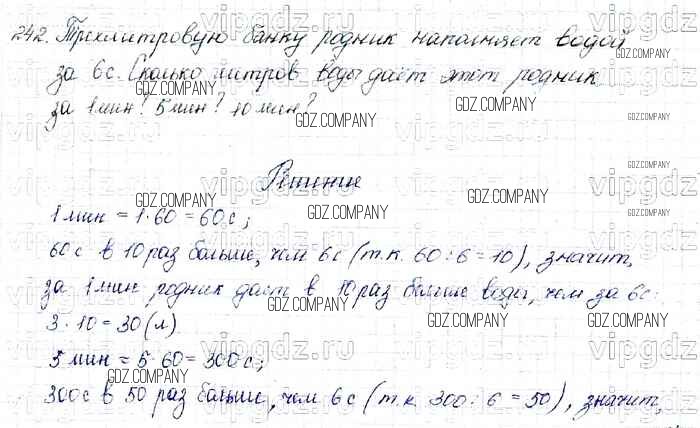 242. Трехлитровую банку родник наполняет водой
за 6с. Сколько литров воды даёт этот родник
за 1 мин? 5 мин? 10 мин?
Решение
1 мин = 1·60 = 60с;
60с в 10 раз больше, чем 6с (т.к. 60:6=10), значит,
за 1 мин родник даст в 10 раз больше воды, чем за 6с.
3·10=30(л)
5 мин = 5·60=300с;
300с в 50 раз больше, чем 6с (т.к. 300:6=50), значит,
vipgdz.ru
GDZ.COMPANY